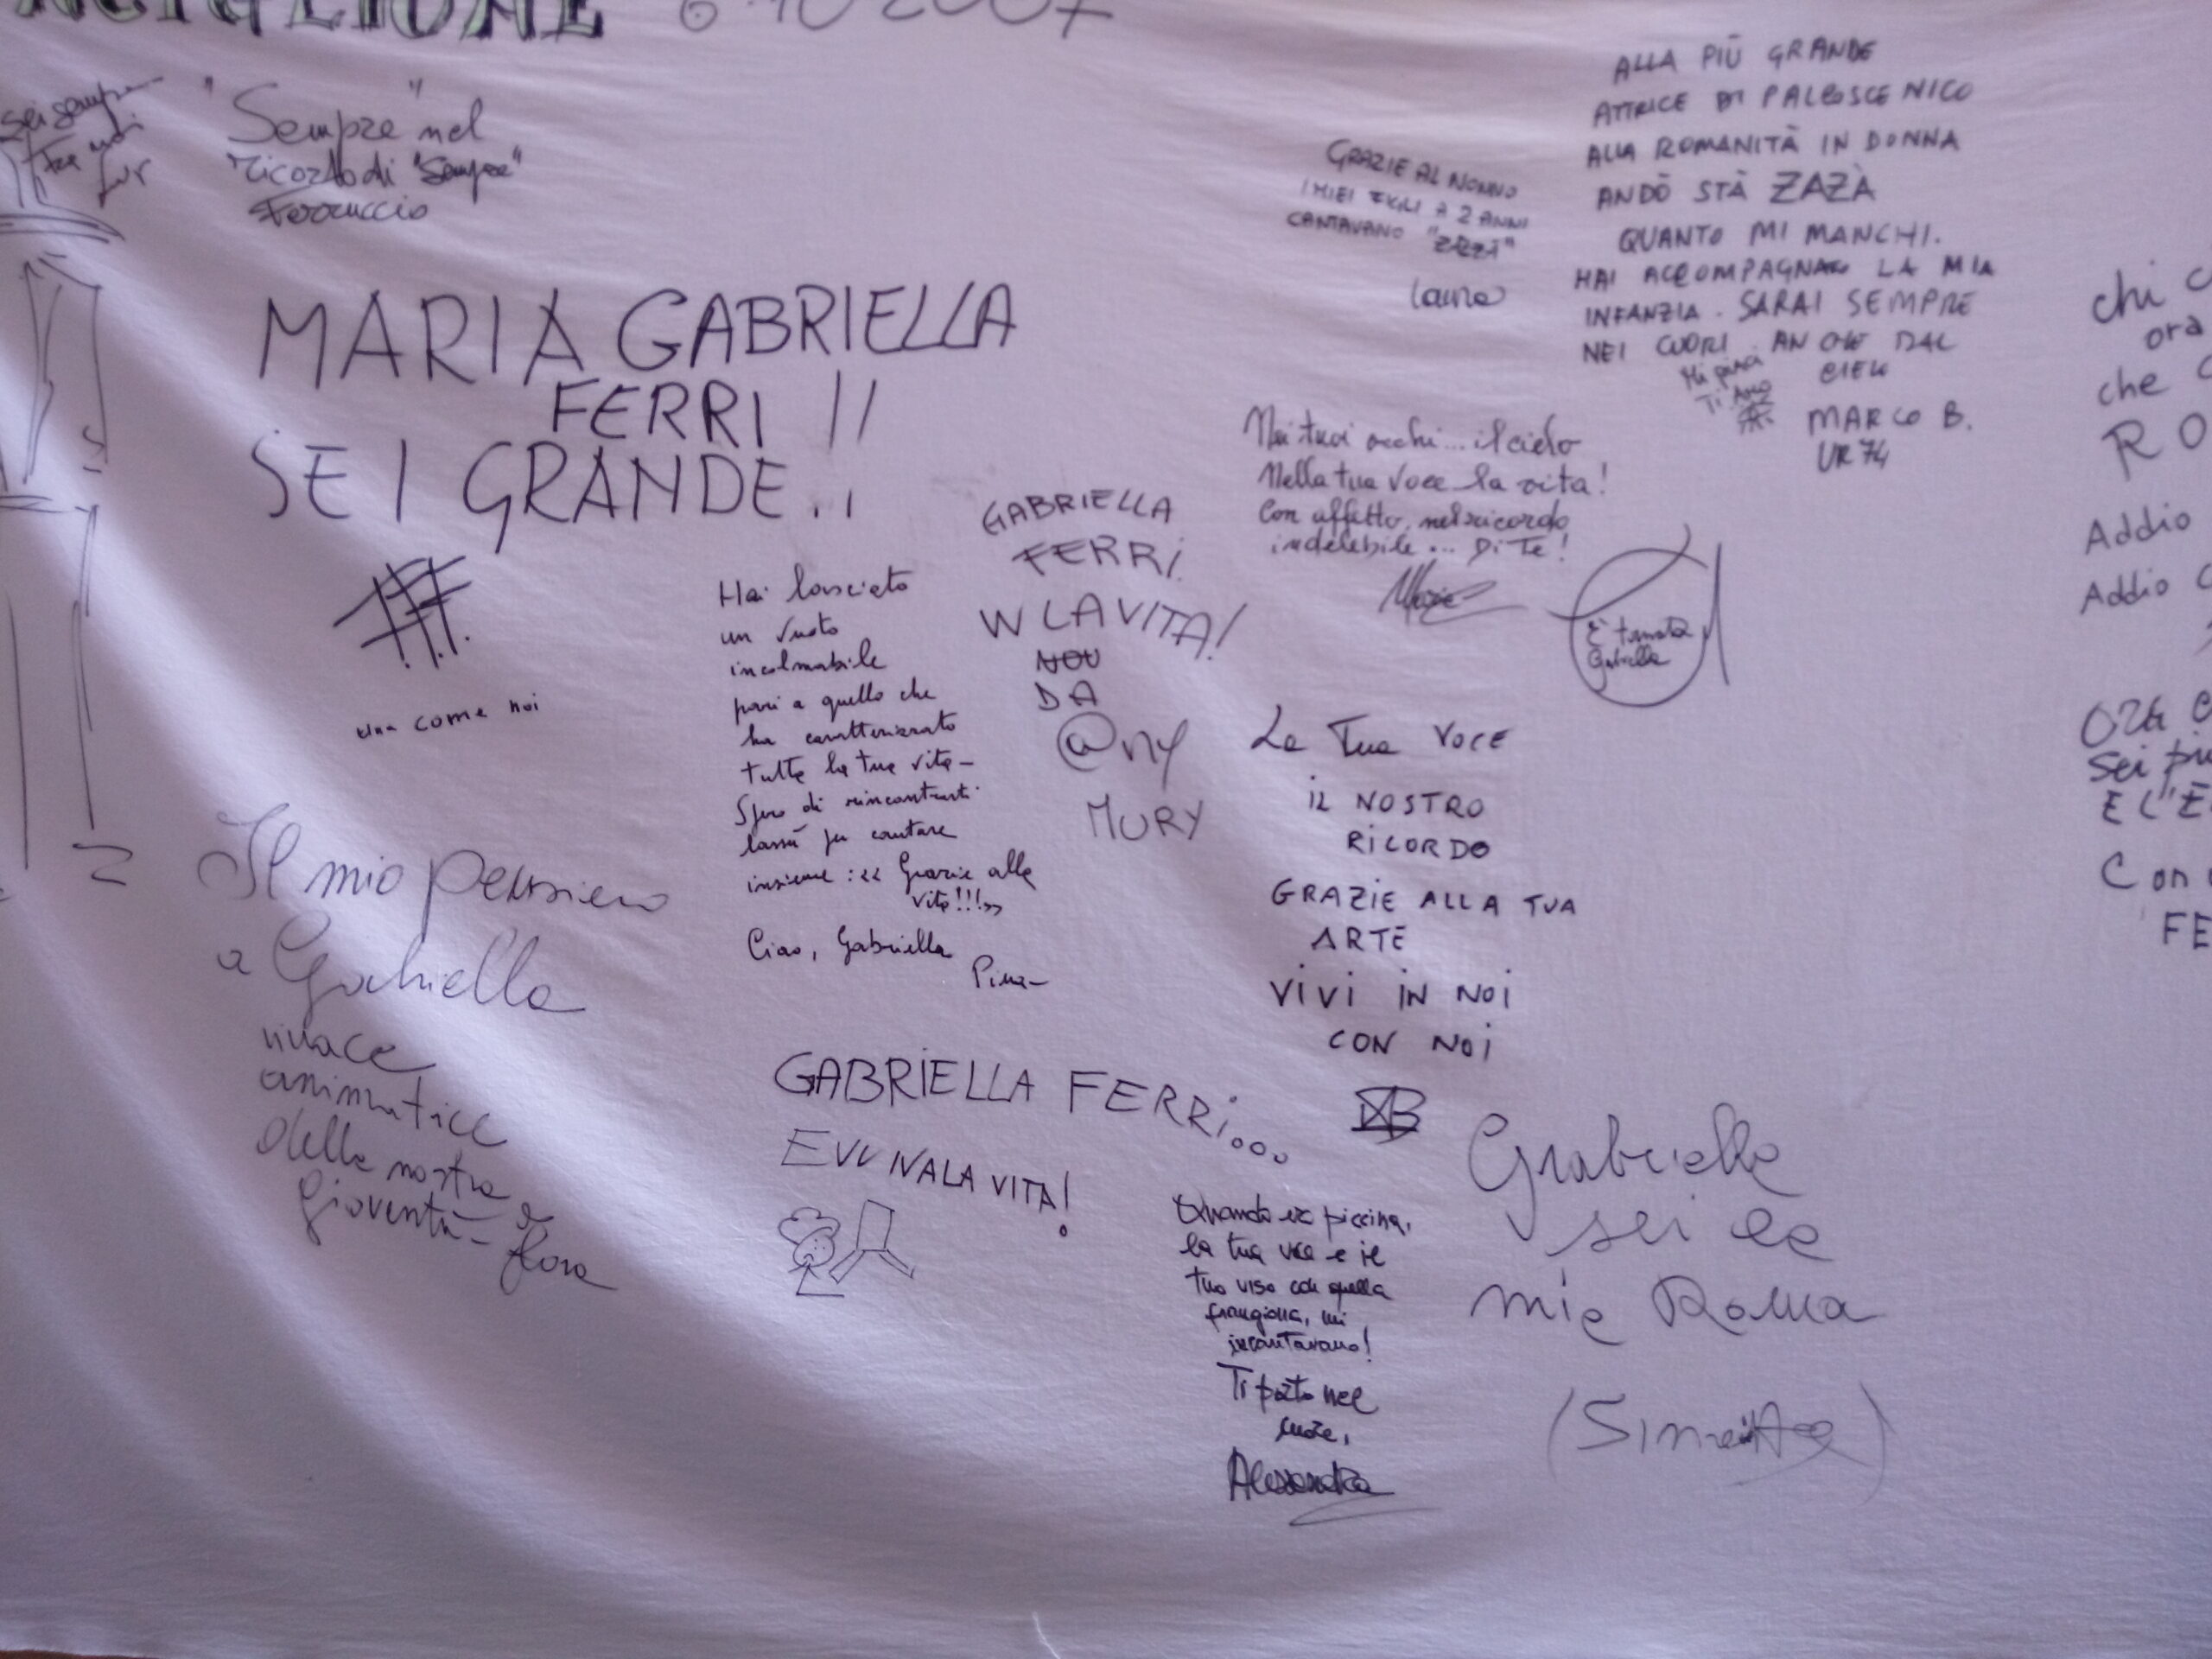 6.10.2007
sei sempre
tra noi
"Sempre" nel
ricordo di "Sempre"
Ferruccio
MARIA GABRIELLA
FERRI !!
SEI GRANDE..
una come noi
Il mio pensiero
a Gabriella
vivace
animatrice
della nostra
gioventù -
Flora
Hai lasciato
un vuoto
incolmabile
pari a quello che
ha caratterizzato
tutta la tua vita -
Spero di rincontrarti
lassù per cantare
insieme: << Grazie alla
vita!!!>>
Ciao, Gabriella
Pina -
GABRIELLA
FERRI.
W LA VITA!
DA
@ny
MURY
GABRIELLA FERRi...
EVVIVA LA VITA!
GRAZIE AL NONNO
I MIEI FIGLI A 2 ANNI
CANTAVANO "ZAZÀ"
Laura
ALLA PIÙ GRANDE
ATTRICE DI PALCOSCENICO
ALLA ROMANITÀ IN DONNA
ANDÒ STÀ ZAZÀ
QUANTO MI MANCHI.
HAI ACCOMPAGNATO LA MIA
INFANZIA. SARAI SEMPRE
NEI CUORI ANCHE DAL
CIELO
MARCO B.
Ti Amo
Nei tuoi occhi... il cielo
Nella tua voce la vita!
Con affetto, nel ricordo
indelebile... Di Te!
È tornata
Gabriella
La Tua VOCE
iL NOSTRO
RiCORDO
GRAZiE ALLA TUA
ARTE
ViVi iN NOi
CON NOi
Quando ero piccina,
la tua voce e il
tuo viso con quella
frangiona, mi
incantavano!
Ti porto nel
cuore,
Alessandra
Gabriella
sei la
mia Roma
(Simonetta)
chi
ora
che
RO
Addio
Addio
ORA
sei più
E L'È
Con
FE